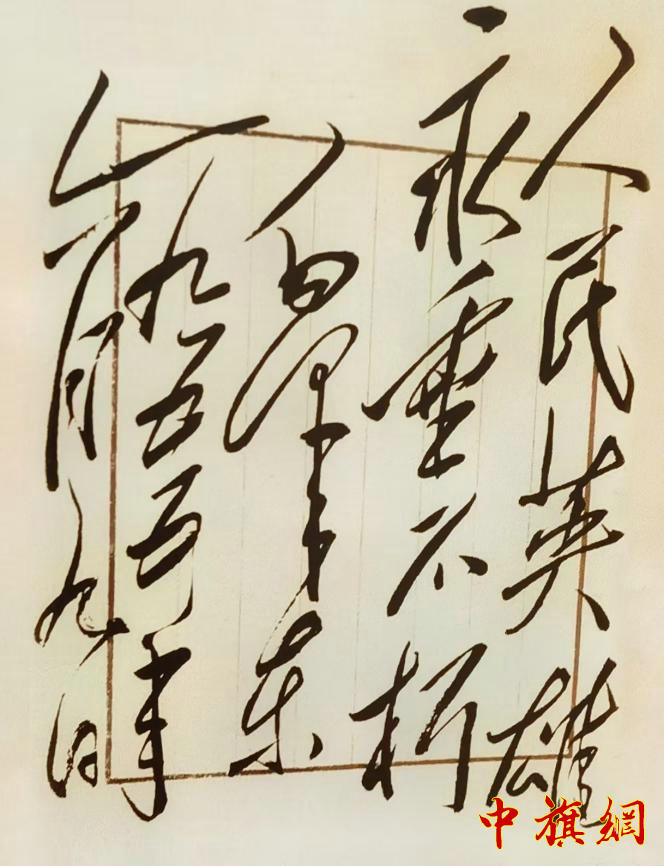 人民英雄
永垂不朽
毛泽东
一九五五年
六月九日
中旗網